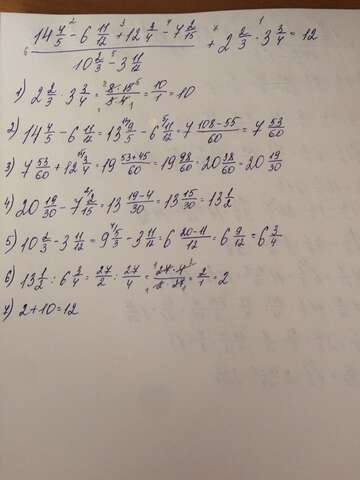 14 4/5 - 6 11/12 + 12 3/4 - 7 2/15
10 2/3 - 3 11/12
+ 2 2/3 · 3 3/4 = 12
1) 2 2/3 · 3 3/4 = 8·15/3·4 = 10/1 = 10
2) 14 4/5 - 6 11/12 = 13 9/5 - 6 11/12 = 7 108-55/60 = 7 53/60
3) 7 53/60 + 12 3/4 = 19 53+45/60 = 19 98/60 = 20 38/60 = 20 19/30
4) 20 19/30 - 7 2/15 = 13 19-4/30 = 13 15/30 = 13 1/2
5) 10 2/3 - 3 11/12 = 9 5/3 - 3 11/12 = 6 20-11/12 = 6 9/12 = 6 3/4
6) 13 1/2 : 6 3/4 = 27/2 : 27/4 = 27·4/2·27 = 2/1 = 2
7) 2+10=12